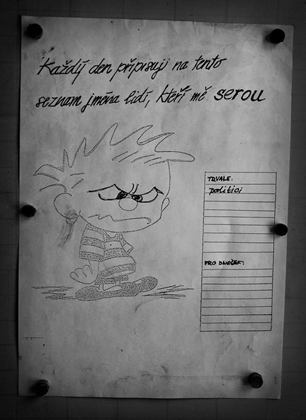 Každý den připisuji na tento
seznam jména lidí, kteří mě serou
TRVALE:
politici
PRO DNEŠEK: